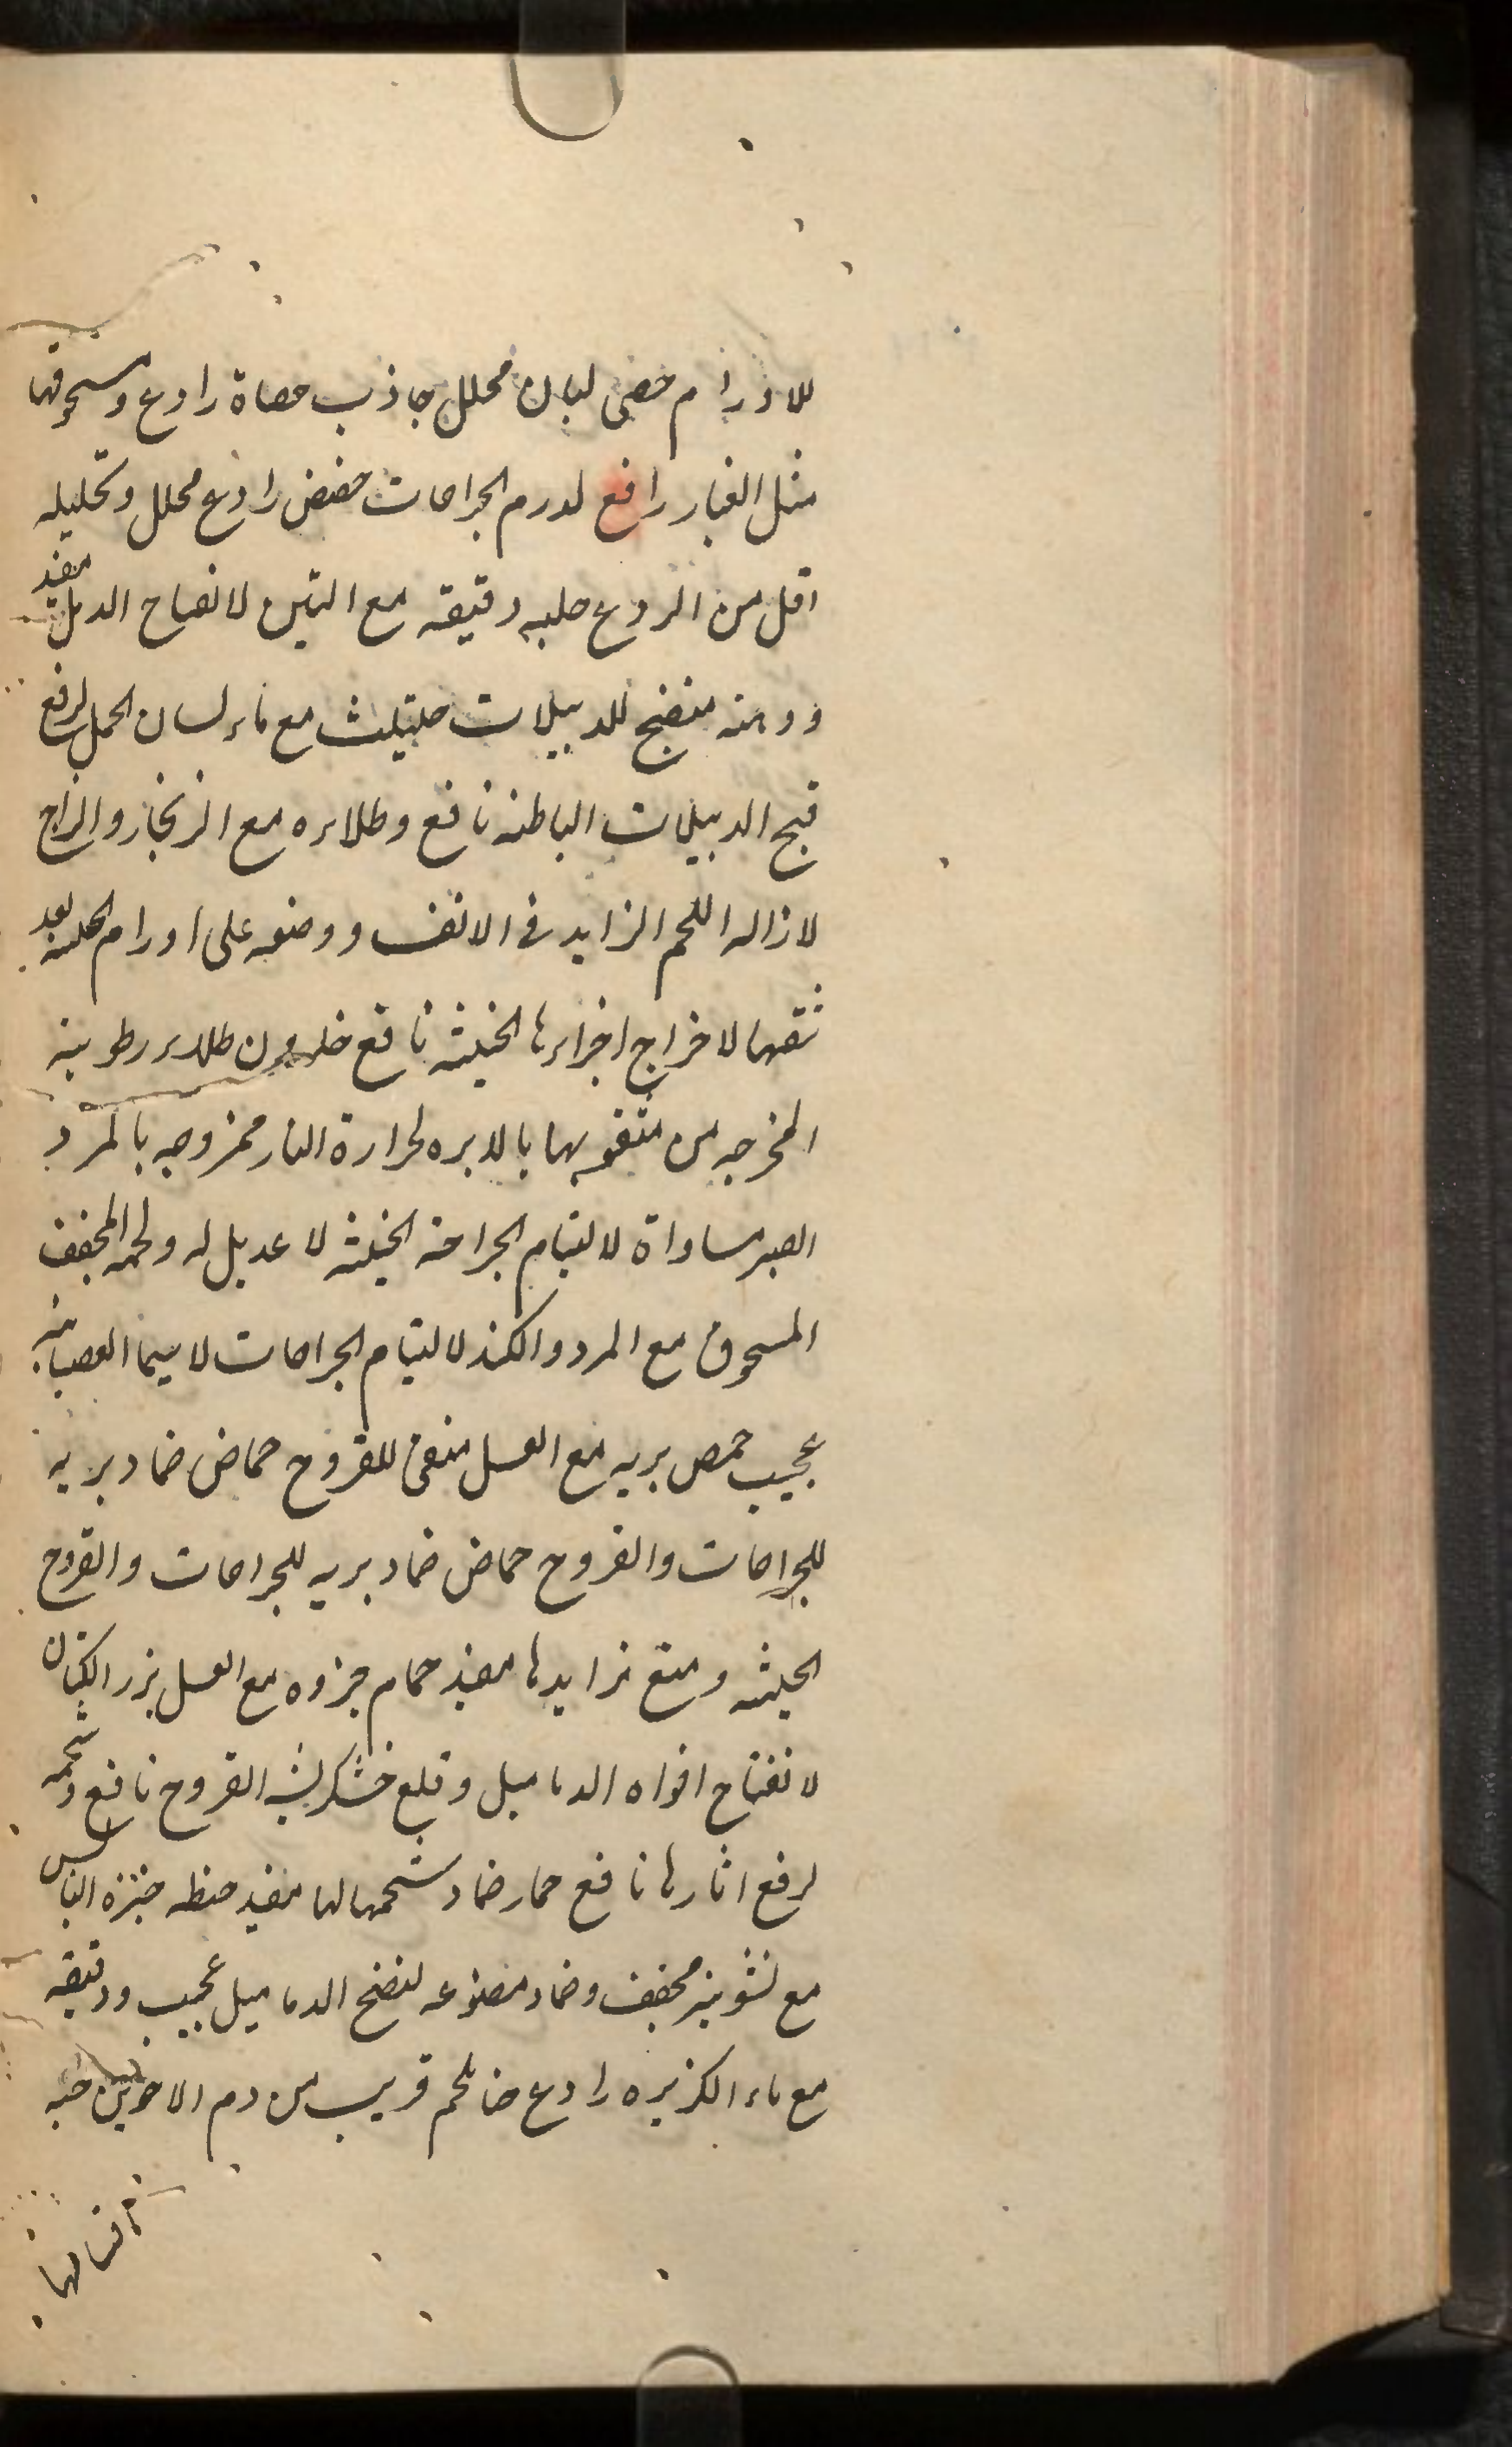 للاورام حصی لبان محلل جاذب حصاة رادع ومسحوقها
مثل الغبار رافع لورم الجراحات حضض رادع محلل وتحلیله
اقل من الردع حلبه دقیقه مع التین لانفتاح الدمل مفید
ودهنه منضج للدبیلات حلتیت مع ماء لسان الحمل لرفع
قیح الدبیلات الباطنه نافع وطلاءه مع الزنجار والزاج
لازاله اللحم الزاید فی الانف ووضعه علی اورام بعد
ثقبها لاخراج اجزاءها الخبیثه نافع حلزون طلاء رطوبته
المخرجه من مثقوبها بالابره لحرارة النار ممزوجه بالمر و
الصبر مساواة لالتیام الجراحة الخبیثه لا عدیل له ولحمه المجفف
المسحوق مع المر و الکندر لالتیام الجراحات لا سیما العصبانیه
عجیب حمص بریه مع العسل منقی للقروح حماض ضماد بریه
للجراحات والقروح حماض ضماد بریه للجراحات والقروح
الخبیثه ومنع تزایدها مفید حمام جزوه مع العسل بزر الکتان
لانفتاح افواه الدمامیل وقلع خشکریشه القروح نافع وشحمه
لرفع اثارها نافع حمار ضماد شحمها لها مفید حنطه خبزه الیابس
مع نشویته مجفف وضماد ممضوغه لنضج الدمامیل عجیب ودقیقه
مع ماء الکزبره رادع حنا ملحم قریب من دم الاخوین حبه